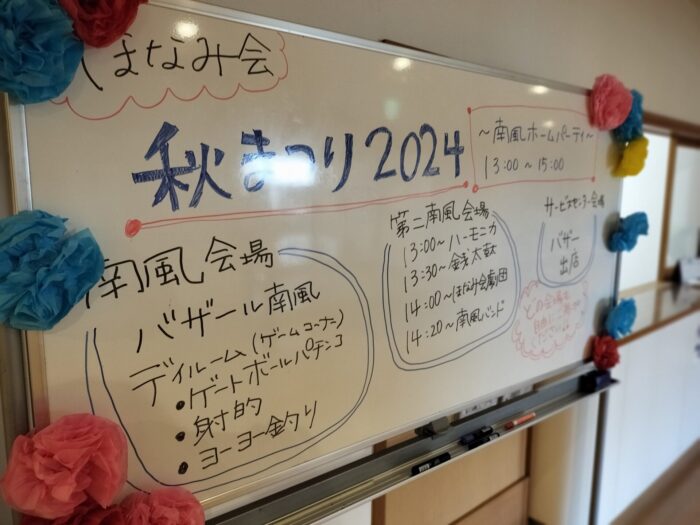 ほなみ会
秋まつり2024
～南風ホームパーティ～
13:00～15:00
南風会場
バザール南風
デイルーム(ゲームコーナー)
•ゲートボールパチンコ
•射的
•ヨーヨー釣り
第二南風会場
13:00～ハーモニカ
13:30～銭太鼓
14:00～ほなみ会劇団
14:20～南風バンド
サービスセンター会場
バザー
出店
どの会場も
自由に
ください